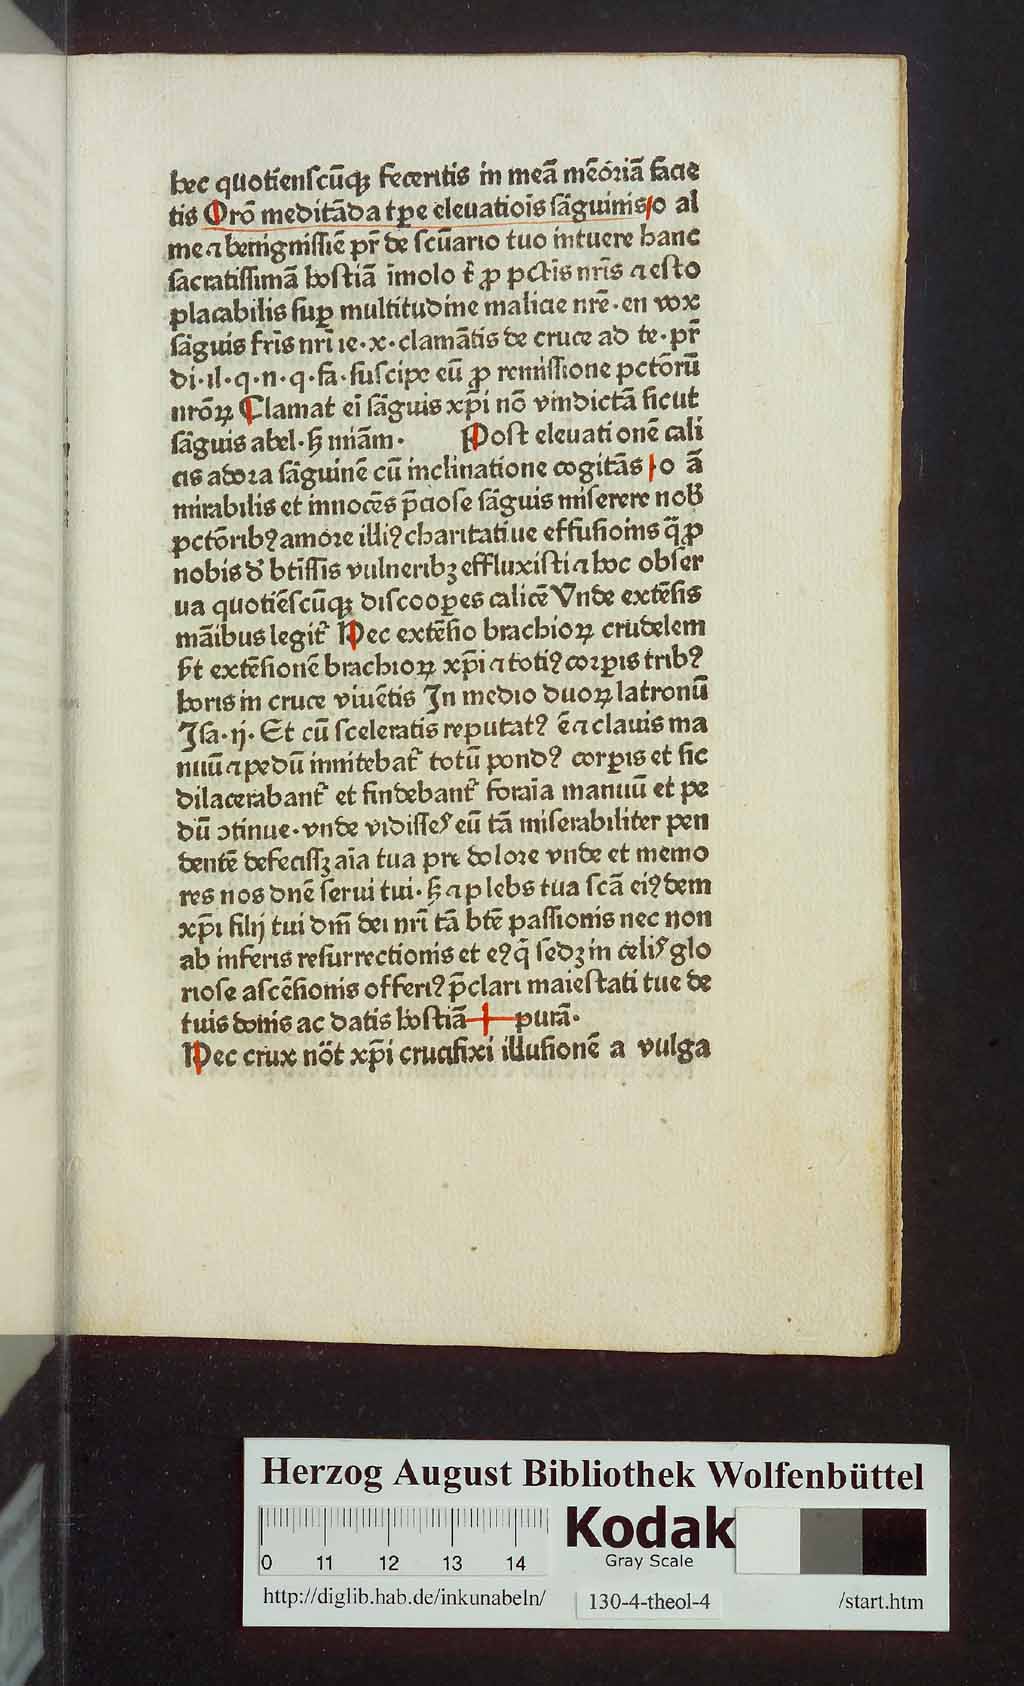 hec quotienſcūqꝫ feceritis in meā mēoriā facie
tis Orō meditāda tꝑe eleuatiois ſāguinis o al
me ⁊ benigniſſiē pr̄ de ſcūario tuo intuere hanc
ſacratiſſimā hoſtiā īmolo t̄ ꝓ pctīs nrīs ⁊ eſto
placabilis ſuꝑ multitudine malicie nrē · en vox
ſāguis frīs nrī ie · x · clamātis de cruce ad te · pr̄
di · il · q · n · q · fa · ſuſcipe eū ꝓ remiſſione pctōrū
nrōꝝ Clamat ei ſāguis xp̄i nō vindictā ſicut
ſāguis abel · ſꝫ miām · Poſt eleuationē cali
cis adora ſāguinē cū inclinatione cogitās o ā
mirabilis et innocēs p̄cioſe ſāguis miſerere nob̄
pctōribꝰ amore illiꝰ charitatiue effuſionis q̄ ꝓ
nobis d̄ btīſſis vulneribꝫ effluxiſti ⁊ hoc obſer
ua quotiēſcūqꝫ diſcooꝑes calicē Vnde extēſis
māibus legit᷑ Hec extēſio brachioꝝ crudelem
ſt̄ extēſionē brachioꝝ xp̄i ⁊ totiꝰ corꝑis tribꝰ
horis in cruce viuētis In medio duoꝝ latronū
Iſa · ij · Et cū ſceleratis reputatꝰ ē ⁊ clauis ma
nuū ⁊ pedū innitebat᷑ totū pondꝰ corꝑis et ſic
dilacerabant᷑ et findebant᷑ foraīa manuū et pe
dū ꝯtinue · vnde vidiſſeſ eū tā miſerabiliter pen
dentē defeciſſꝫ aīa tua pre dolore vnde et memo
res nos dn̄e ſerui tui · ſꝫ ⁊ plebs tua ſcā eiꝰdem
xp̄i filij tui dn̄i dei nrī tā btē paſſionis nec non
ab inferis reſurrectionis et eꝰ q̄ ſedꝫ in celiſ glo
rioſe aſcēſionis offeriꝰ p̄clari maieſtati tue de
tuis donis ac datis hoſtiā + purā ·
Hec crux nōt xp̄i crucifixi illuſionē a vulga
Herzog August Bibliothek Wolfenbüttel
0 11 12 13 14
Kodak
Gray Scale
http://diglib.hab.de/inkunabeln/ 130-4-theol-4 /start.htm